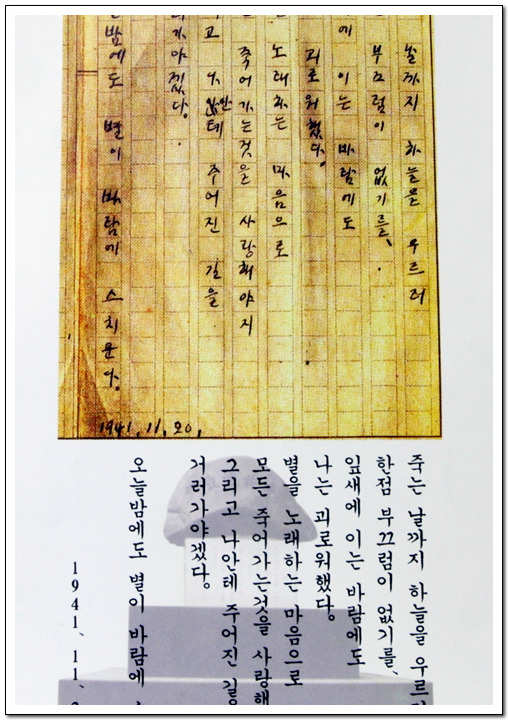 날까지 하늘을 우르러
부끄럼이 없기를、
에 이는 바람에도
괴로워했다.
노래하는 마음으로
죽어가는것을 사랑해야지
고 나안테 주어진 길을
가야겠다.
밤에도 별이 바람에 스치운다.
1941.11.20.
죽는 날까지 하늘을 우르
한점 부끄럼이 없기를、
잎새에 이는 바람에도
나는 괴로워했다。
별을 노래하는 마음으로
모든 죽어가는것을 사랑해
그리고 나안테 주어진 길
거러가야겠다。
오늘밤에도 별이 바람에
1941、11、